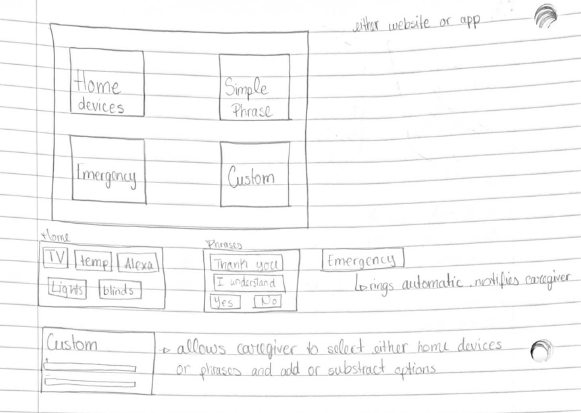 either website or app
Home
devices
Simple
Phrase
Emergency
Custom
Home
TV
temp
Alexa
Lights
blinds
Phrases
Thank you
I understand
Yes
No
Emergency
rings automatic. notifies caregiver
Custom
allows caregiver to select either home devices
or phrases and add or substract options